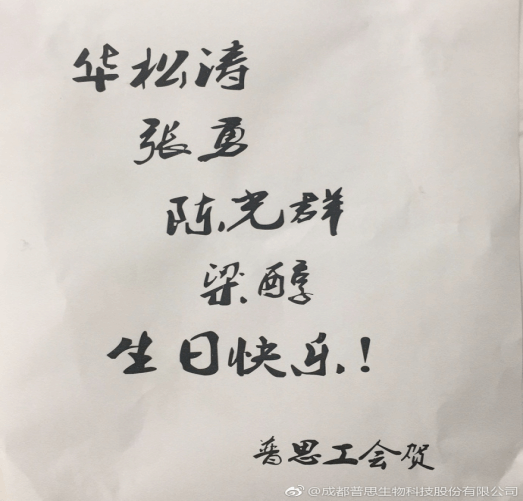 华松涛
张勇
陈光群
梁醇
生日快乐!
普思工会贺
@成都普思生物科技股份有限公司